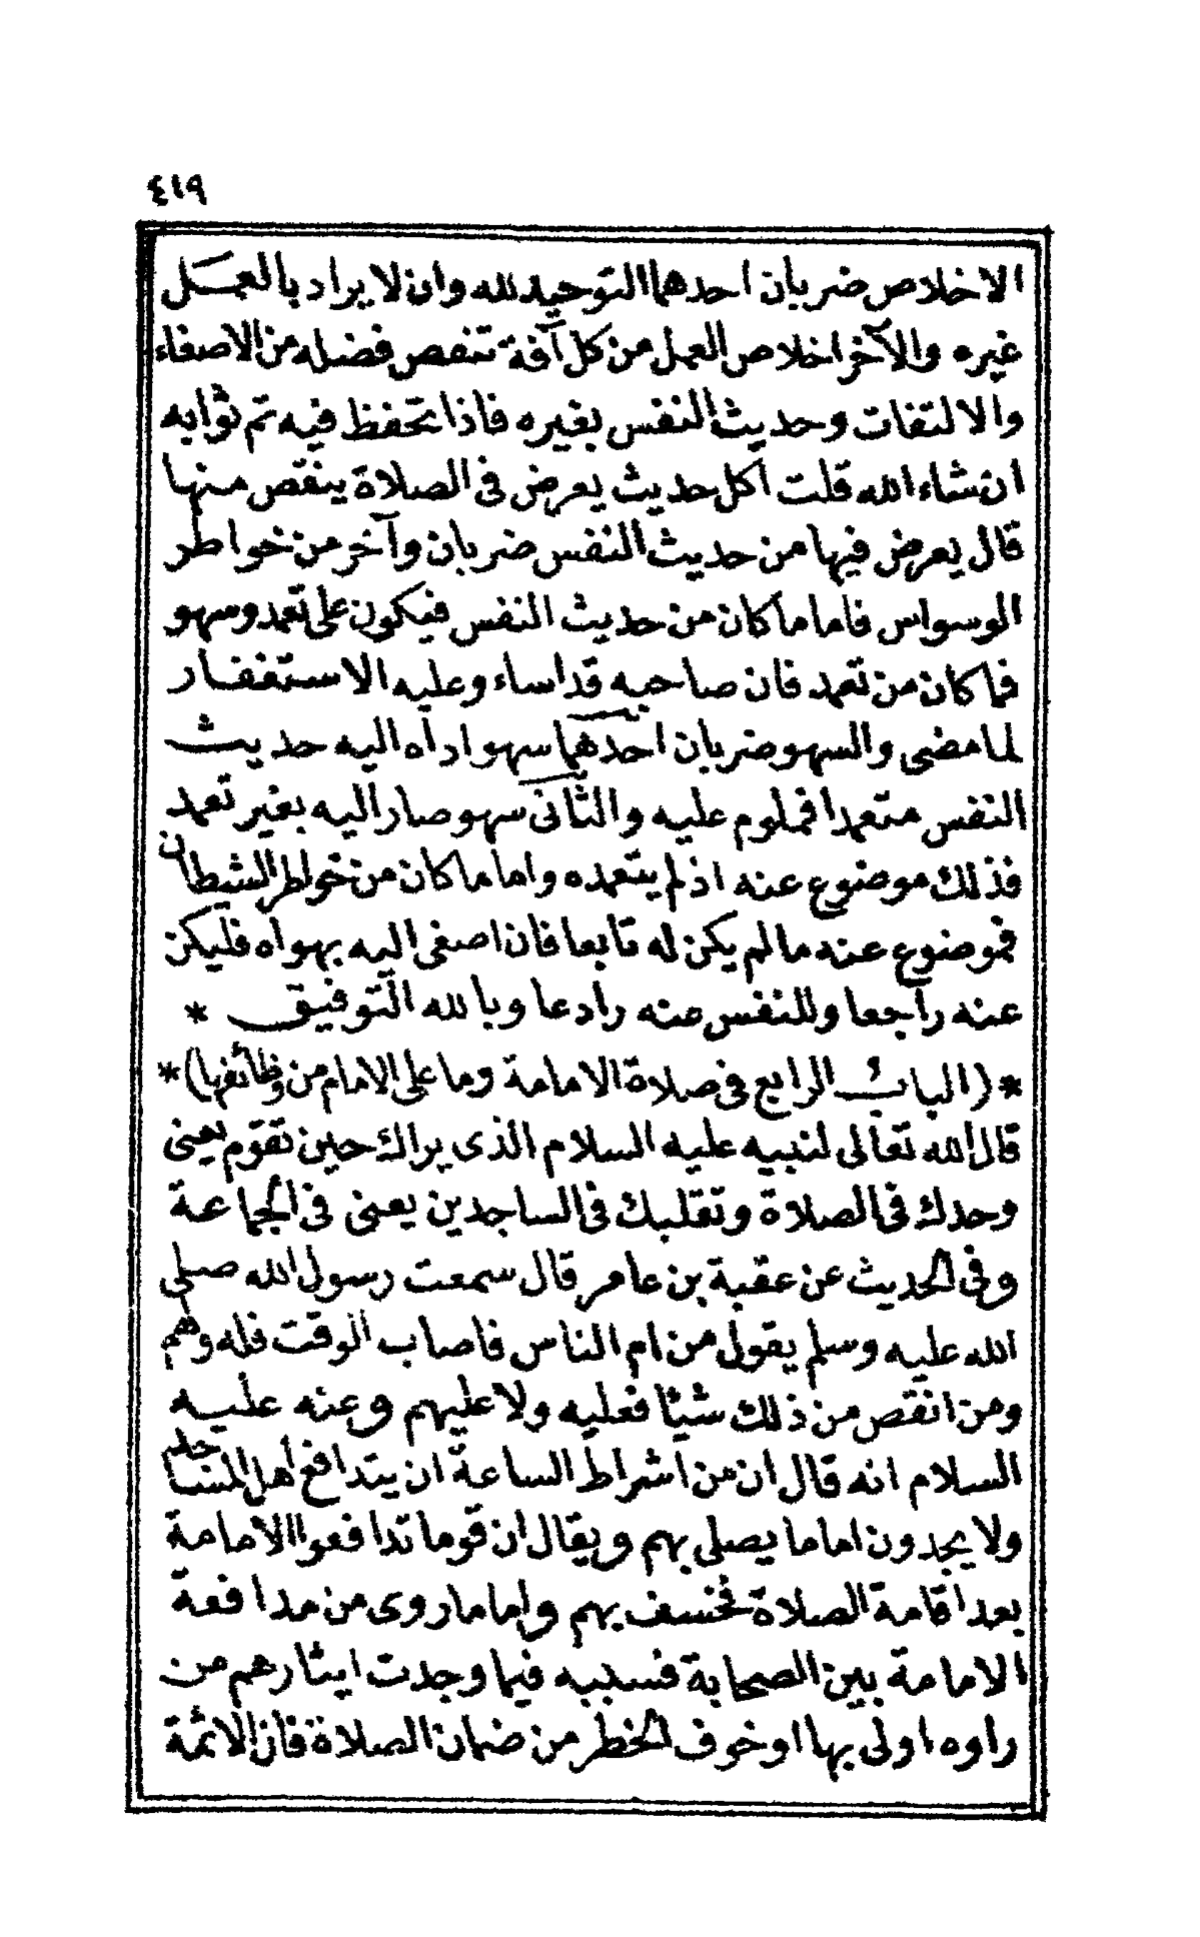 ٤١٩
الاخلاص ضربان احدهما التوحيد لله وان لا يراد بالعمل
غيره والآخر اخلاص العمل من كل آفة تنقص فضله من الاصغاء
والالتفات وحديث النفس بغيره فاذا تحفظ فيه تم ثوابه
ان شاء الله قلت اكل حديث يعرض فى الصلاة ينقص منها
قال يعرض فيها من حديث النفس ضربان وآخر من خواطر
الوسواس فاما ما كان من حديث النفس فيكون على تعمد وسهو
فما كان من تعمد فان صاحبه قد اساء وعليه الاستغفار
لما مضى والسهو ضربان احدهما سهو اداه اليه حديث
النفس متعمدا فملوم عليه والثانى سهو صار اليه بغير تعمد
فذلك موضوع عنه اذ لم يتعمده واما ما كان من خواطر الشيطان
فموضوع عنه ما لم يكن له تابعا فان اصغى اليه بهواه فليكن
عنه راجعا وللنفس عنه رادعا وبالله التوفيق *
* (الباب الرابع فى صلاة الامامة وما على الامام من وظائفها) *
قال الله تعالى لنبيه عليه السلام الذى يراك حين تقوم يعنى
وحدك فى الصلاة وتقلبك فى الساجدين يعنى فى الجماعة
وفى الحديث عن عقبة بن عامر قال سمعت رسول الله صلى
الله عليه وسلم يقول من ام الناس فاصاب الوقت فله ولهم
ومن انقص من ذلك شيئا فعليه ولا عليهم وعنه عليه
السلام انه قال ان من اشراط الساعة ان يتدافع اهل المساجد
ولا يجدون اماما يصلى بهم ويقال ان قوما تدافعوا الامامة
بعد اقامة الصلاة فخسف بهم واما ما روى من مدافعة
الامامة بين الصحابة فسببه فيما وجدت ايثارهم من
راوه اولى بها او خوف الخطر من ضمان الصلاة فان الائمة